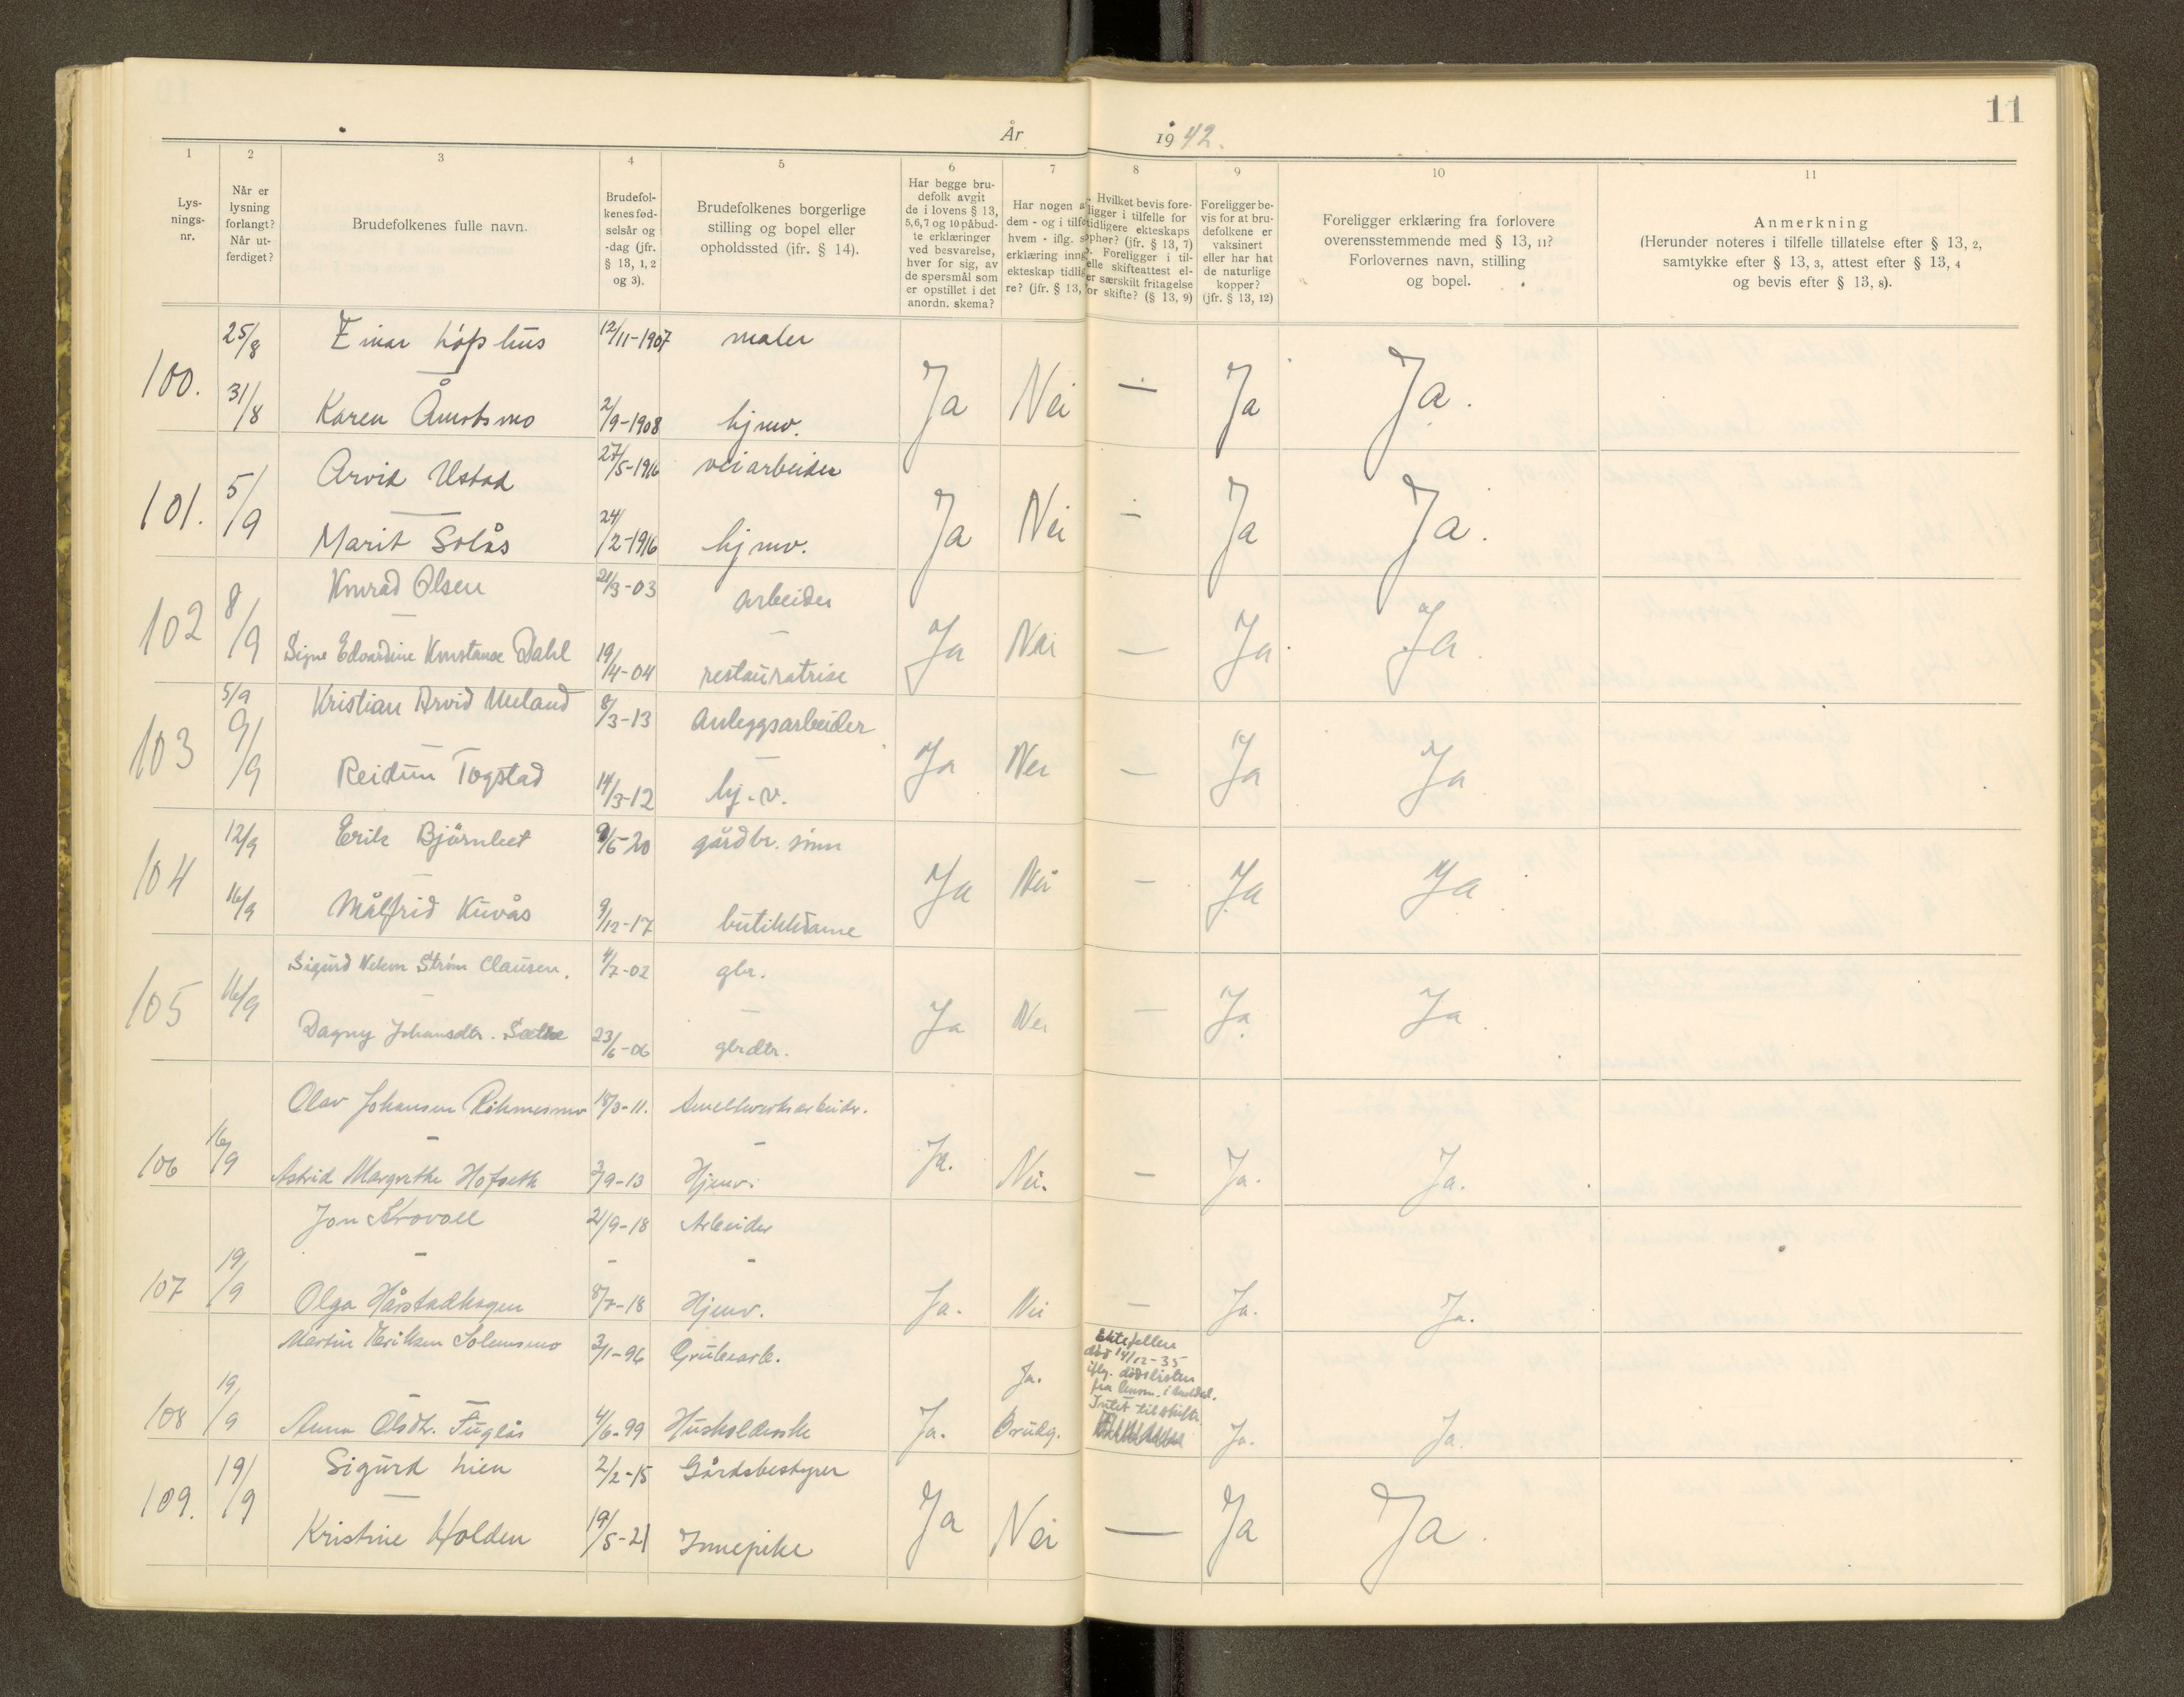 11
År 1942.
1 2 3 4 5 6 7 8 9 10 11
Lys-
nings-
nr.
Når er
lysning
forlangt?
Når ut-
ferdiget?
Brudefolkenes fulle navn.
Brudefol-
kenes fød-
selsår og
-dag (jfr.
§ 13, 1, 2
og 3).
Brudefolkenes borgerlige
stilling og bopel eller
opholdssted (ifr. § 14).
Har begge bru-
defolk avgit
de i lovens § 13,
5, 6, 7 og 10 påbud-
te erklæringer
ved besvarelse,
hver for sig, av
de spørsmål som
er opstillet i det
anordn. skema?
Har nogen a
dem - og i tilfe
hvem - iflg. s
erklæring inng
ekteskap tidlig
re? (jfr. § 13,
Hvilket bevis fore-
ligger i tilfelle for
tidligere ekteskaps
ophør? (jfr. § 13, 7)
Foreligger i til-
elle skifteattest el-
er særskilt fritagelse
or skifte? (§ 13, 9)
Foreligger be-
vis for at bru-
defolkene er
vaksinert
eller har hat
de naturlige
kopper?
(jfr. § 13, 12)
Foreligger erklæring fra forlovere
overensstemmende med § 13, 11?
Forlovernes navn, stilling
og bopel.
Anmerkning
(Herunder noteres i tilfelle tillatelse efter § 13, 2,
samtykke efter § 13, 3, attest efter § 13, 4
og bevis efter § 13, 8).
25/8 Einar Løfshus 12/11-1907 maler
100. 31/8 Karen Åmotsmo 2/9-1908 hjmv. Ja Nei — Ja Ja.
Arvid Ustad 27/5-1916 veiarbeider
101. 5/9 — Ja Nei — Ja Ja.
Marit Solås 24/2-1916 hjmv.
Konrad Olsen 21/3-03 arbeider
102 8/9 — Ja Nei — Ja Ja
Signe Edvardine Konstanse Dahl 19/4-04 restauratrise
5/9 Kristian Arvid Meland 8/3-13 Anleggsarbeider
103 9/9 — Ja Nei — Ja Ja
Reidun Togstad 14/3-12 hj.v.
12/9 Erik Bjørnbet 9/6-20 gårdbr. sønn
104 Ja Nei — Ja Ja
16/9 Målfrid Kuvås 9/12-17 butikkdame
Sigurd Strøm Clausen. 4/7-02 gbr.
105 16/9 — Ja Nei — Ja Ja
Dagny Johansdtr. Sæthe 23/6-06 gbrdtr.
Olav Johansen 18/3-11. Smelteverksarbeider.
106 16/9 — Ja. Nei. — Ja. Ja.
Astrid Margrethe Hofseth 2/9-13 Hjemv.
Jon Krovoll 21/9-18 Arbeider
107 19/9 — Ja. Nei — Ja. Ja.
Olga Hårstadhagen 8/7-18 Hjemv.
Martin Eriksen Solemsmo 3/1-96 Grubearb.
Ektefellen
død 14/12-35
iflg. dødslisten
fra lensm. i
Intet til skifte
108 19/9 Anna Olsdtr. Fuglås 4/6-99 Husholderske Ja. Ja. Brudg. Ja. Ja.
Sigurd Lien 2/2-15 Gårdsbestyrer
109. 19/9 — Ja Nei — Ja Ja.
Kristine Holden 19/5-21 Innepike